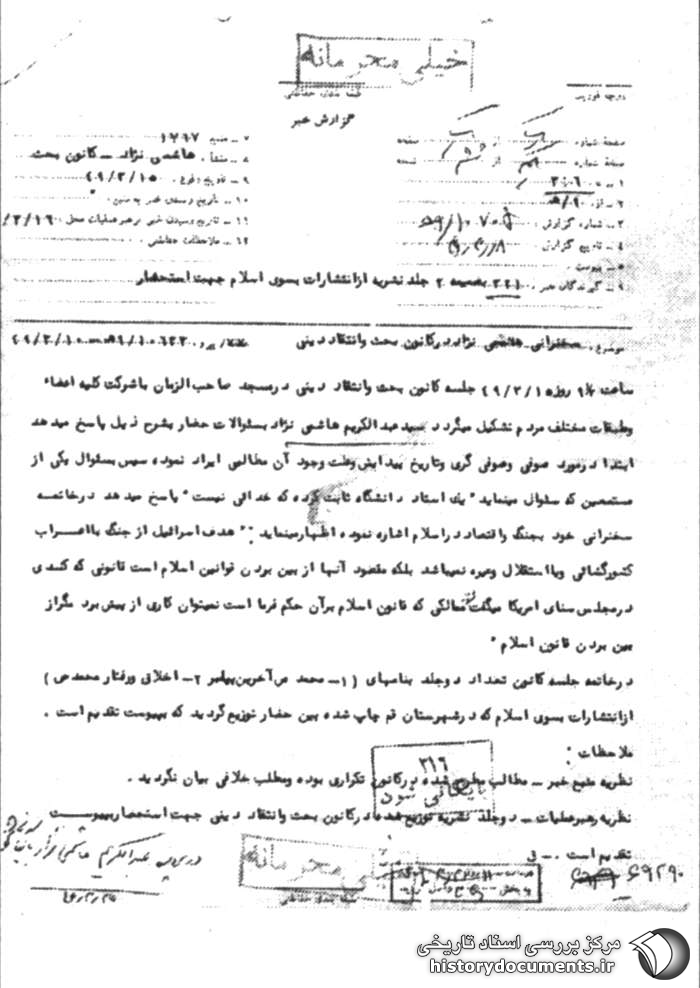 خیلی محرمانه
طبقه بندی حفاظتی
درجه فوریت
گزارش خبر
صفحه شماره از صفحه
نسخه شماره از نسخه
۱ – به ۳۰۶
۲ – از ۹/ه
۳ – شماره گزارش
۴ – تاریخ گزارش
۵ – پیوست
۶ – گیرندگان خبر ۳۲۱ بضمیمه ۲ جلد نشریه ازانتشارات بسوی اسلام جهت استحضار
۷ – منبع ۱۲۶۷
۸ – منشأ هاشمی نژاد – کانون بحث
۹ – تاریخ وقوع ۴۹/۳/۱۵
۱۰ – تاریخ رسیدن خبر به منبع "
۱۱ – تاریخ رسیدن خبر برهبر عملیات محل ۳/۱۶/
۱۲ – ملاحظات حفاظتی
موضوع: سخنرانی هاشمی نژاد در کانون بحث وانتقاد دینی
ساعت ۹ روز ۴۹/۳/۱۵ جلسه کانون بحث وانتقاد دینی درمسجد صاحب الزمان باشرکت کلیه اعضاء
وطبقات مختلف مردم تشکیل میگردد سید عبدالکریم هاشمی نژاد بسئوالات حضار بشرح ذیل پاسخ میدهد
ابتدا درمورد صوفی وصوفی گری وتاریخ پیدایش وعلت وجود آن مطالبی ایراد نموده سپس بسئوال یکی از
مستمعین که سئوال مینماید "یک استاد دانشگاه ثابت کرده که خدائی نیست" پاسخ میدهد درخاتمه
سخنرانی خود بجنگ واقتصاد دراسلام اشاره نموده اظهارمینماید : "هدف اسرائیل از جنگ بااعراب
کشورگشائی ویااستقلال وغیره نمیباشد بلکه مقصود آنها از بین بردن قوانین اسلام است قانونی که کندی
درمجلس سنای امریکا میگفت ممالکی که قانون اسلام برآن حکم فرما است نمیتوان کاری از پیش برد مگراز
بین بردن قانون اسلام "
درخاتمه جلسه کانون تعداد دوجلد بنامهای (۱– محمد ص آخرین پیامبر ۲– اخلاق ورفتار محمد ص)
ازانتشارات بسوی اسلام که درشهرستان قم چاپ شده بین حضار توزیع گردید که بپیوست تقدیم است .
ملاحظات :
نظریه منبع خبر – مطالب مطرح شده درکانون تکراری بوده ومطلب خلافی بیان نگردید .
نظریه رهبرعملیات – دوجلد نشریه توزیع شده درکانون بحث وانتقاد دینی جهت استحضار بپیوست
تقدیم است . – ق
۳۱۶
بایگانی شود
خیلی محرمانه
طبقه بندی حفاظتی
در پرونده عبدالکریم هاشمی نژاد بایگانی
۶۹۲۹۰
مرکز بررسی اسناد تاریخی
historydocuments.ir